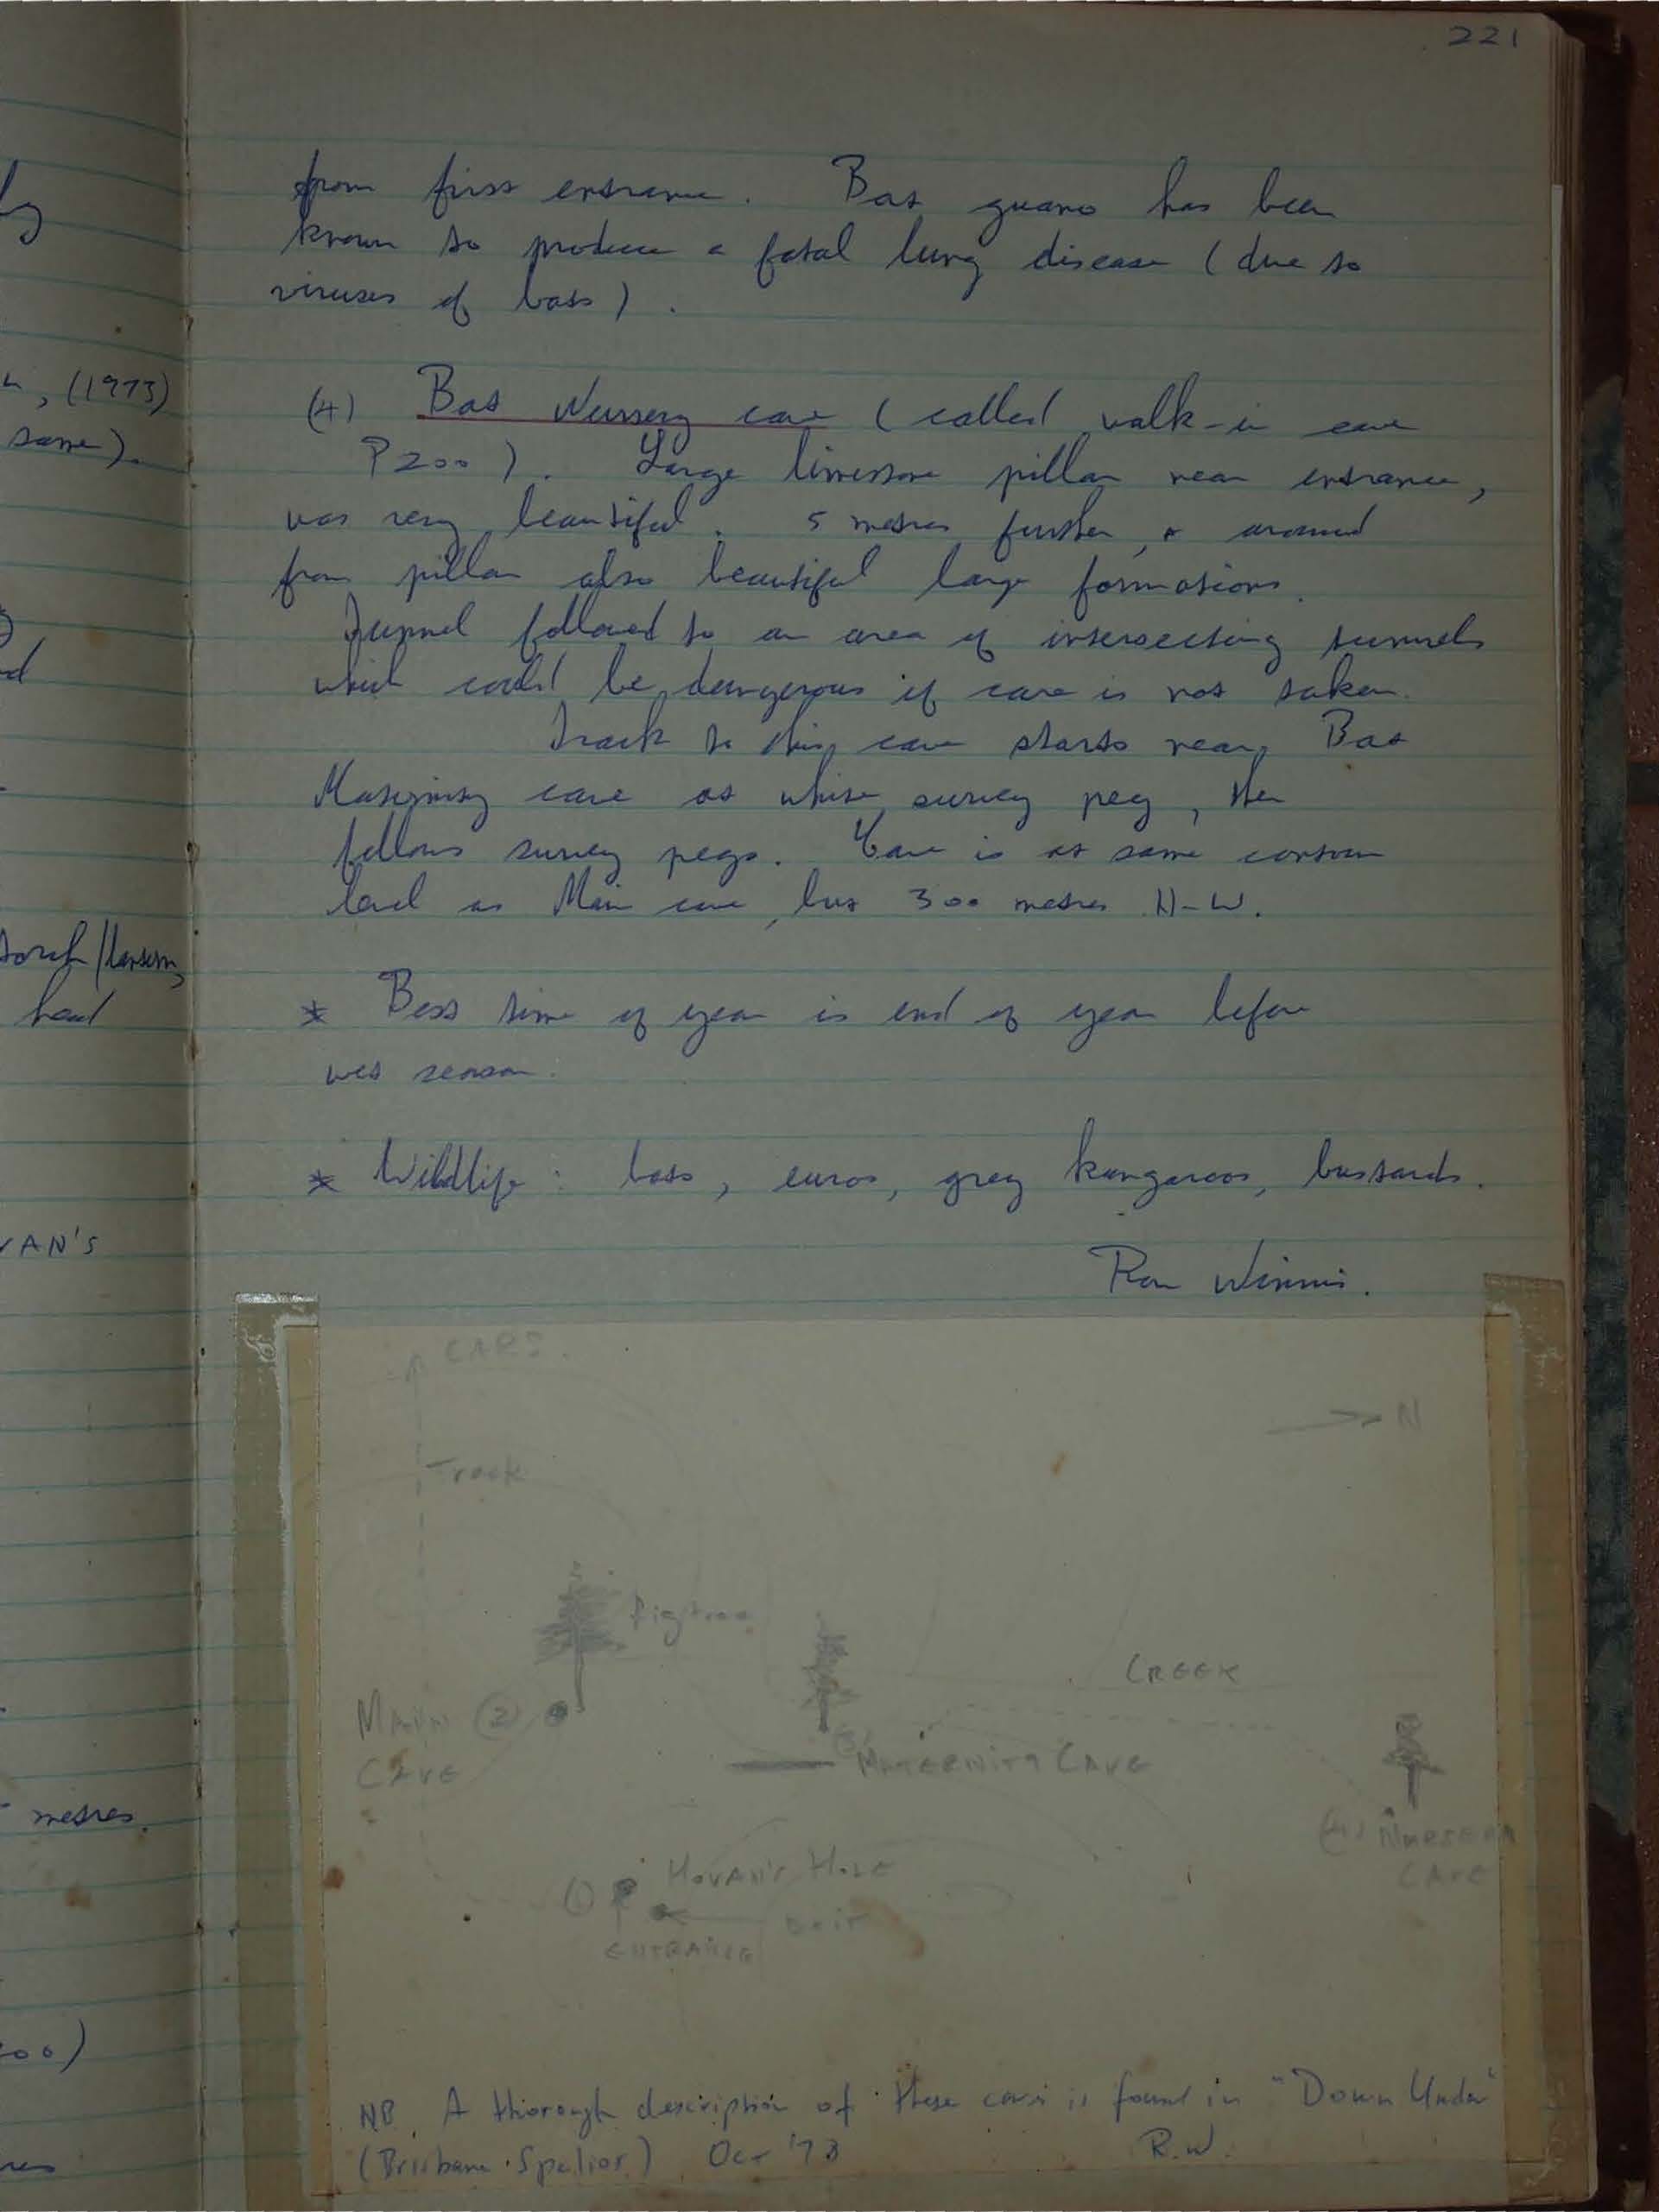 221
from first entrance. Bat guano has been
known to produce a fatal lung disease (due to
viruses of bats).
(4) Bat Nursery cave (called walk-in cave
P200). Large limestone pillar near entrance,
was very beautiful. 5 metres further, & around
from pillar also beautiful large formations.
Tunnel followed to an area of intersecting tunnels
which could be dangerous if care is not taken.
Track to this cave starts near Bat
Maternity cave at white survey peg, then
follows survey pegs. Cave is at same contour
level as Main cave, but 300 metres N-W.
* Best time of year is end of year before
wet season.
* Wildlife: bats, euros, grey kangaroos, bustards.
Ron
CARS.
N
Track
Fig tree
CREEK
MAIN (2)
CAVE
MATERNITY CAVE
(4) NURSERY
CAVE
(1) HOVAN'S HOLE
EXIT
ENTRANCE
NB. A thorough description of these caves is found in "Down Under"
(Brisbane Spelios.) Oct '73 R.W.
, (1973)
same).
torch/lantern,
head
VAN'S
metres.